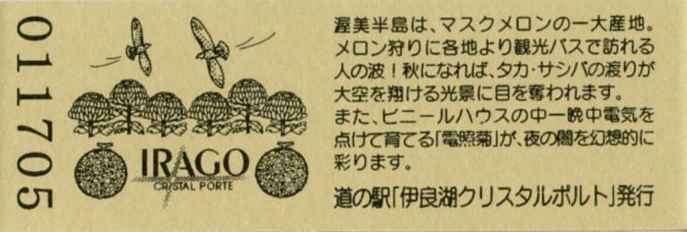 011705
IRAGO
CRISTAL PORTE
渥美半島は、マスクメロンの一大産地。
メロン狩りに各地より観光バスで訪れる
人の波！秋になれば、タカ・サシバの渡りが
大空を翔ける光景に目を奪われます。
また、ビニールハウスの中一晩中電気を
点けて育てる「電照菊」が、夜の闇を幻想的に
彩ります。
道の駅「伊良湖クリスタルポルト」発行